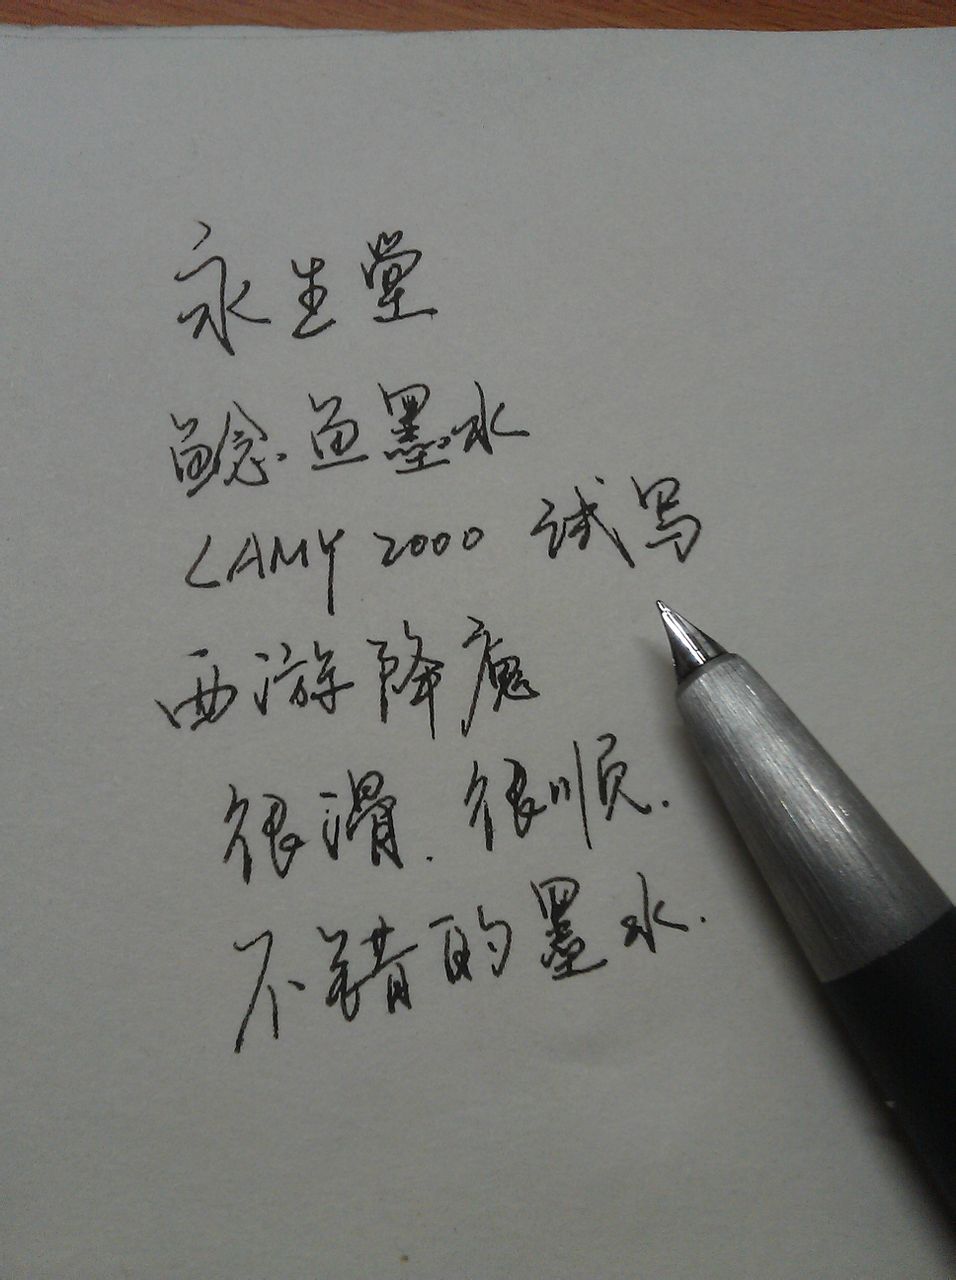 永生堂
鲶鱼墨水
LAMY 2000 试写
西游降魔
很滑.很顺.
不错的墨水.